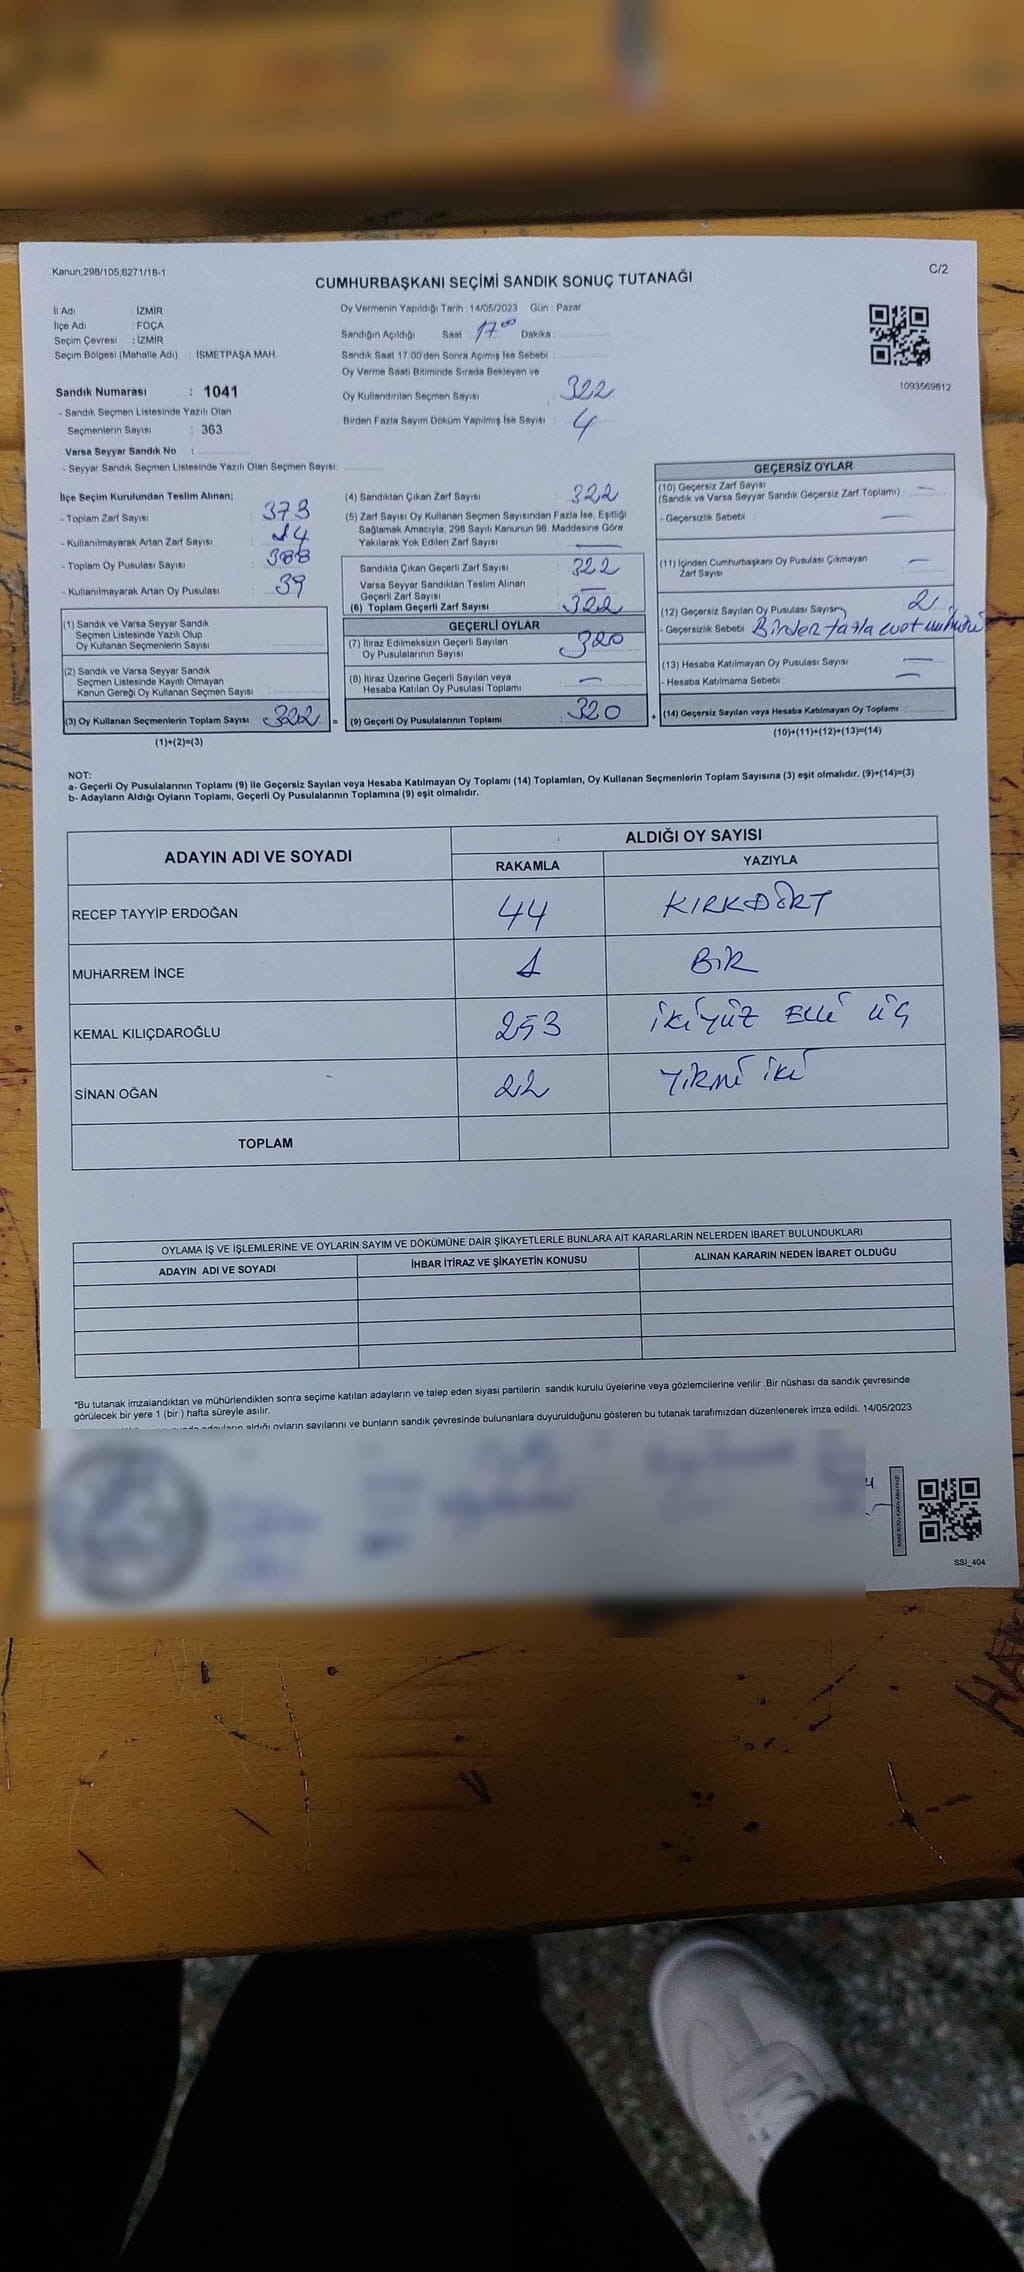 Kanun,298/105,6271/18-1
C/2
CUMHURBAŞKANI SEÇİMİ SANDIK SONUÇ TUTANAĞI
İl Adı : İZMİR
İlçe Adı : FOÇA
Seçim Çevresi : İZMİR
Seçim Bölgesi (Mahalle Adı) : İSMETPAŞA MAH.
Sandık Numarası : 1041
- Sandık Seçmen Listesinde Yazılı Olan
Seçmenlerin Sayısı : 363
Varsa Seyyar Sandık No :
- Seyyar Sandık Seçmen Listesinde Yazılı Olan Seçmen Sayısı:
Oy Vermenin Yapıldığı Tarih : 14/05/2023 Gün : Pazar
Sandığın Açıldığı Saat : 17⁰⁰ Dakika :
Sandık Saat 17:00'den Sonra Açımış İse Sebebi :
Oy Verme Saati Bitiminde Sırada Bekleyen ve
Oy Kullandırılan Seçmen Sayısı : 322
Birden Fazla Sayım Döküm Yapılmış İse Sayısı : 4
1093569812
İlçe Seçim Kurulundan Teslim Alınan;
- Toplam Zarf Sayısı : 373
- Kullanılmayarak Artan Zarf Sayısı : 14
- Toplam Oy Pusulası Sayısı : 388
- Kullanılmayarak Artan Oy Pusulası : 39
(1) Sandık ve Varsa Seyyar Sandık
Seçmen Listesinde Yazılı Olup
Oy Kullanan Seçmenlerin Sayısı :
(2) Sandık ve Varsa Seyyar Sandık
Seçmen Listesinde Kayıtlı Olmayan
Kanun Gereği Oy Kullanan Seçmen Sayısı :
(3) Oy Kullanan Seçmenlerin Toplam Sayısı : 322 =
(1)+(2)=(3)
(4) Sandıktan Çıkan Zarf Sayısı : 322
(5) Zarf Sayısı Oy Kullanan Seçmen Sayısından Fazla İse, Eşitliği
Sağlamak Amacıyla, 298 Sayılı Kanunun 98. Maddesine Göre
Yakılarak Yok Edilen Zarf Sayısı : —
Sandıkla Çıkan Geçerli Zarf Sayısı : 322
Varsa Seyyar Sandıktan Teslim Alınan
Geçerli Zarf Sayısı : —
(6) Toplam Geçerli Zarf Sayısı : 322
GEÇERLİ OYLAR
(7) İtiraz Edilmeksizin Geçerli Sayılan
Oy Pusulalarının Sayısı : 320
(8) İtiraz Üzerine Geçerli Sayılan veya
Hesaba Katılan Oy Pusulası Toplamı : —
(9) Geçerli Oy Pusulalarının Toplamı : 320 +
GEÇERSİZ OYLAR
(10) Geçersiz Zarf Sayısı : —
(Sandık ve Varsa Seyyar Sandık Geçersiz Zarf Toplamı)
- Geçersizlik Sebebi : —
(11) İçinden Cumhurbaşkanı Oy Pusulası Çıkmayan
Zarf Sayısı : —
(12) Geçersiz Sayılan Oy Pusulası Sayısı : 2
- Geçersizlik Sebebi : Birden fazla evet mührü
(13) Hesaba Katılmayan Oy Pusulası Sayısı : —
- Hesaba Katılmama Sebebi : —
(14) Geçersiz Sayılan veya Hesaba Katılmayan Oy Toplamı :
(10)+(11)+(12)+(13)=(14)
NOT:
a- Geçerli Oy Pusulalarının Toplamı (9) ile Geçersiz Sayılan veya Hesaba Katılmayan Oy Toplamı (14) Toplamları, Oy Kullanan Seçmenlerin Toplam Sayısına (3) eşit olmalıdır. (9)+(14)=(3)
b- Adayların Aldığı Oyların Toplamı, Geçerli Oy Pusulalarının Toplamına (9) eşit olmalıdır.
ADAYIN ADI VE SOYADI
ALDIĞI OY SAYISI
RAKAMLA YAZIYLA
RECEP TAYYİP ERDOĞAN 44 KIRKDÖRT
MUHARREM İNCE 1 BİR
KEMAL KILIÇDAROĞLU 253 İKİYÜZ ELLİ ÜÇ
SİNAN OĞAN 22 YİRMİ İKİ
TOPLAM
OYLAMA İŞ VE İŞLEMLERİNE VE OYLARIN SAYIM VE DÖKÜMÜNE DAİR ŞİKAYETLERLE BUNLARA AİT KARARLARIN NELERDEN İBARET BULUNDUKLARI
ADAYIN ADI VE SOYADI İHBAR İTİRAZ VE ŞİKAYETİN KONUSU ALINAN KARARIN NEDEN İBARET OLDUĞU
*Bu tutanak imzalandıktan ve mühürlendikten sonra seçime katılan adayların ve talep eden siyasi partilerin sandık kurulu üyelerine veya gözlemcilerine verilir. Bir nüshası da sandık çevresinde
görülecek bir yere 1 (bir) hafta süreyle asılır.
aldığı oyların sayılarını ve bunların sandık çevresinde bulunanlara duyurulduğunu gösteren bu tutanak tarafımızdan düzenlenerek imza edildi. 14/05/2023
SSI_404